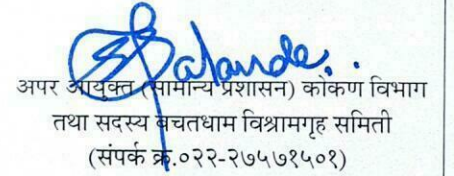 अपर आयुक्त (सामान्य प्रशासन) कोकण विभाग
तथा सदस्य बचतधाम विश्रामगृह समिती
(संपर्क क्र.०२२-२७५७१५०१)